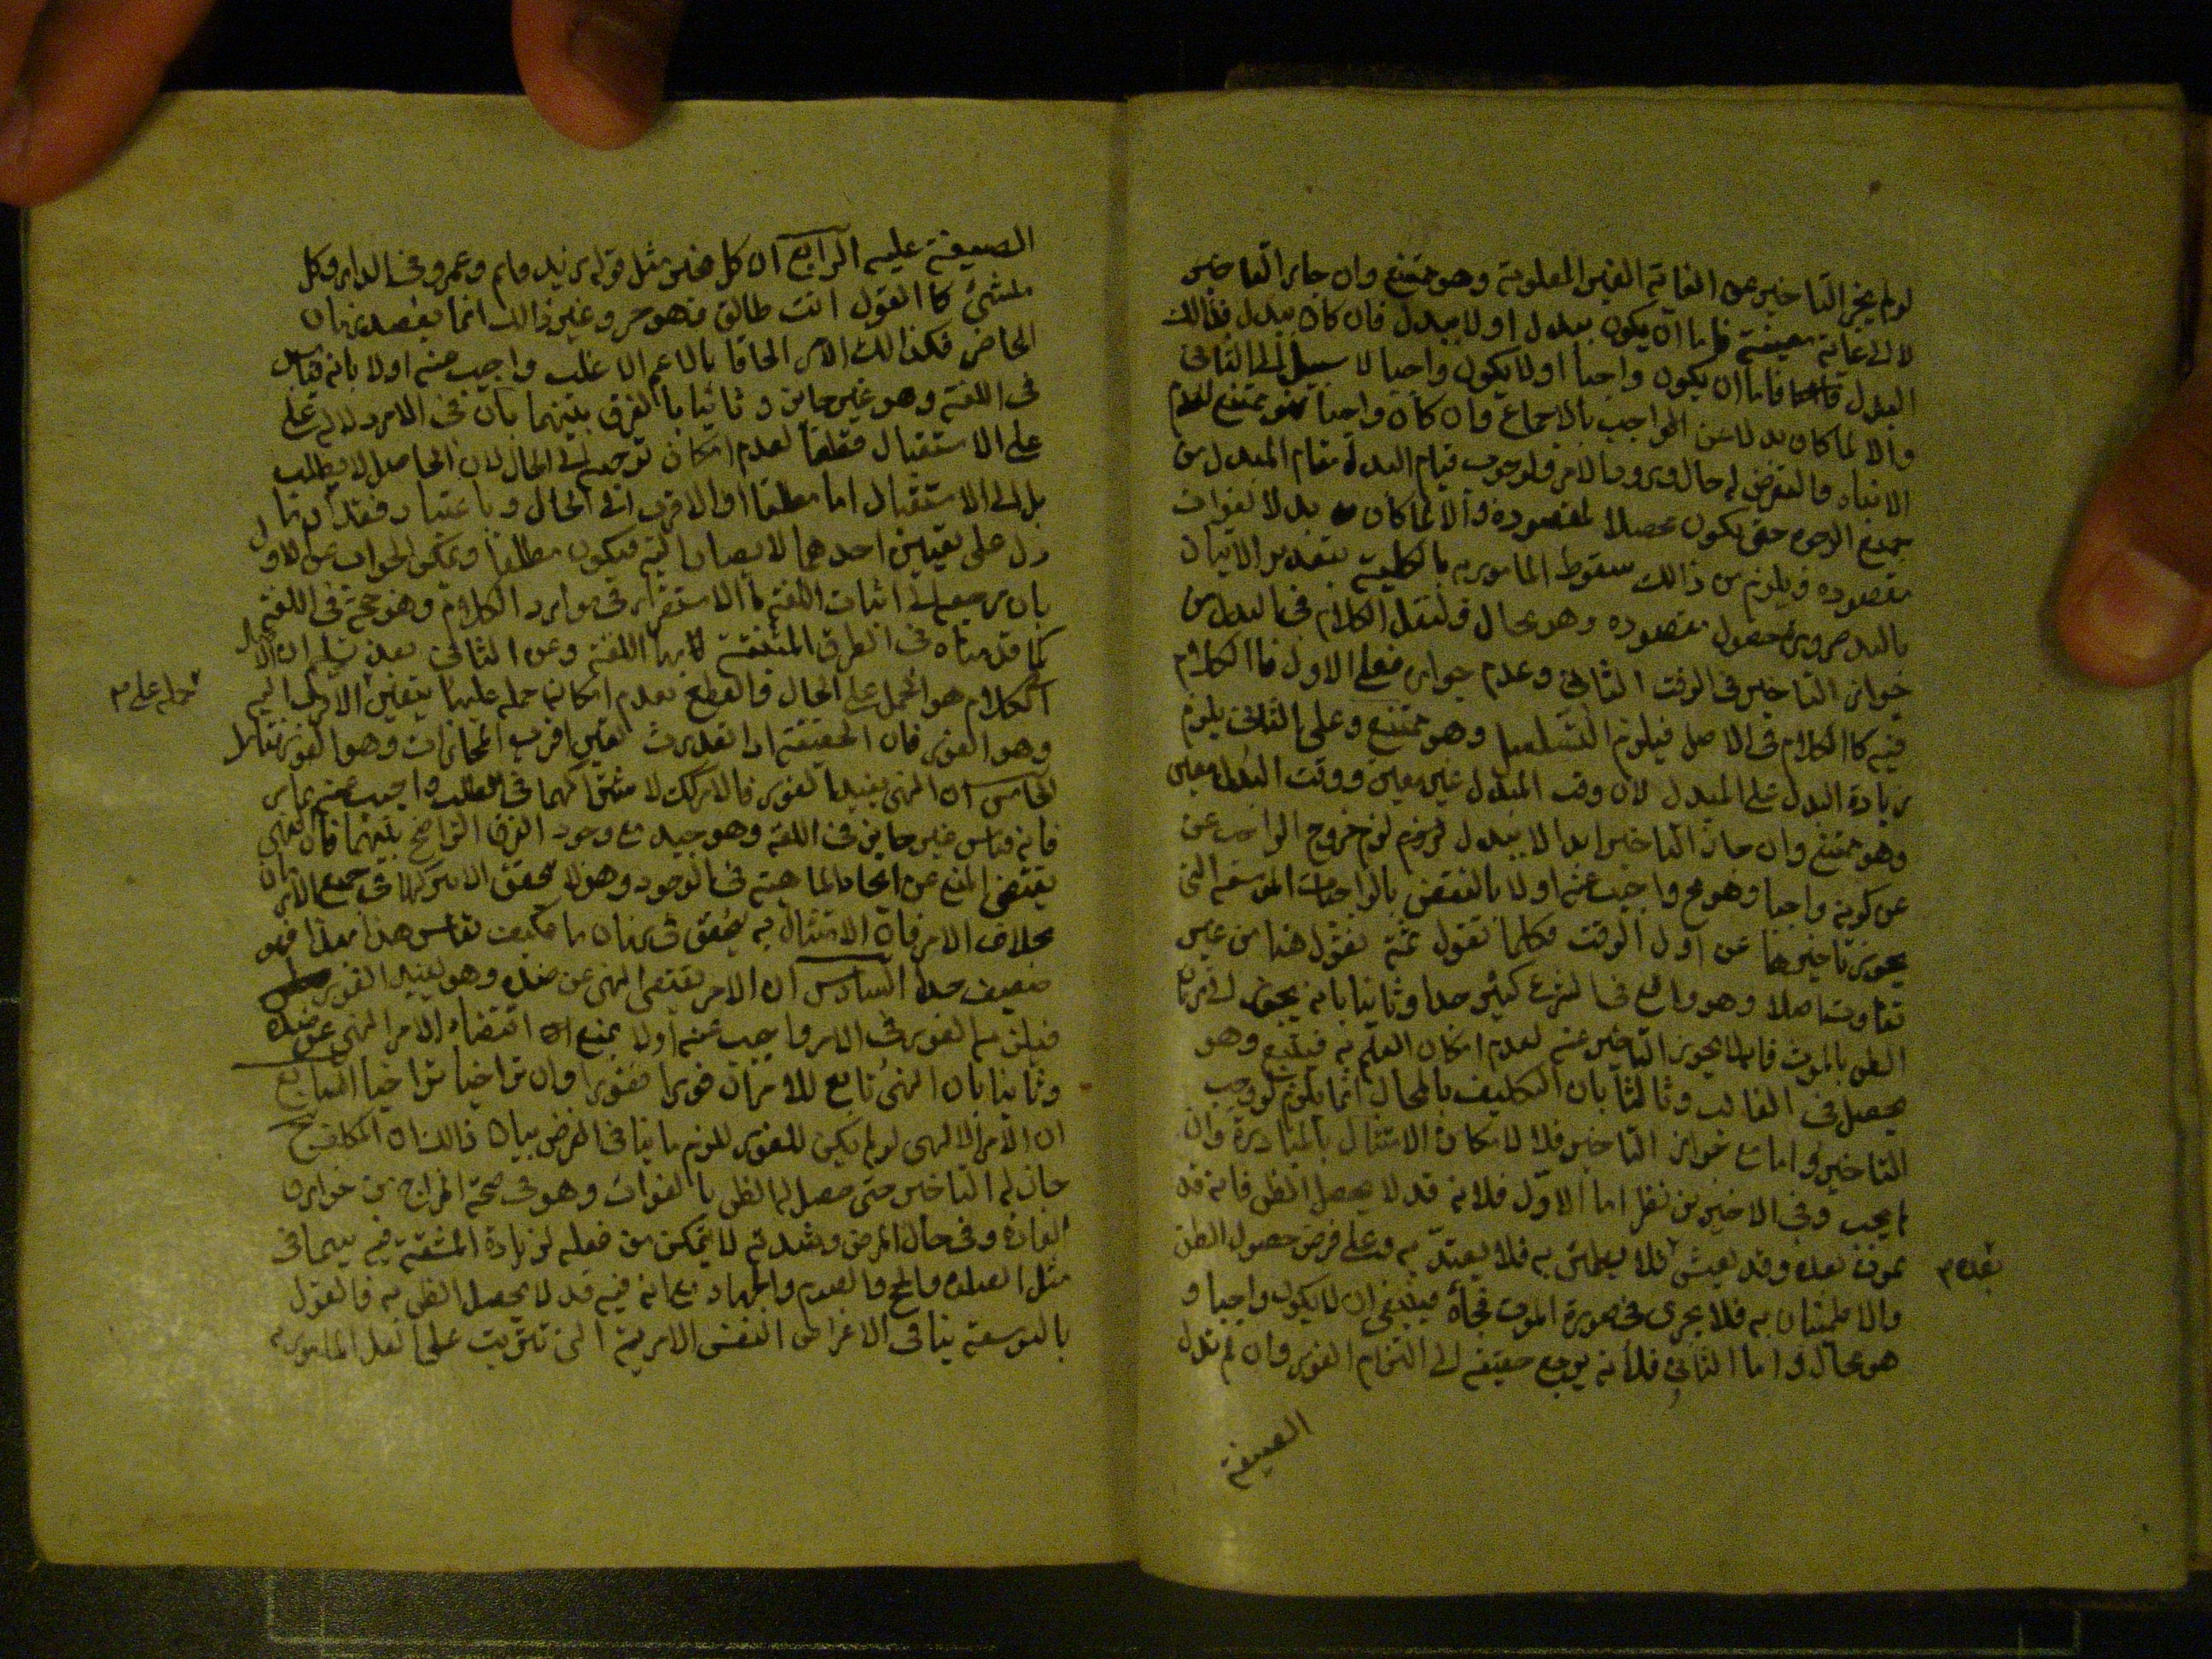 لو لم يجز التاخير عن الغاية الغير المعلومة وهو ممتنع وان جاز التاخير
لا الى غاية معينة فاما ان يكون ببدل او لا ببدل فان كان ببدل فذالك
البدل فاما ان يكون واجبا او لا يكون واجبا لا سبيل الى الثانى
والا لما كان بدلا عن الواجب بالاجماع وان كان واجبا فهو ممتنع لعدم
الانباه والتعرض له حال ورود الامر ولوجوب قيام البدل مقام المبدل من
جميع الوجوه حتى يكون محصلا لمقصوده والا لما كان بدلا لفوات
مقصوده ويلزم من ذالك سقوط المامور به بالكلية بتقدير الاتيان
بالبدل ضرورة حصول مقصوده وهو محال ولنقل الكلام فى البدل من
جواز التاخير فى الوقت الثانى وعدم جوازه فعلى الاول فاالكلام
فيه كاالكلام فى الاصل فيلزم التسلسل وهو ممتنع وعلى الثانى يلزم
زيادة البدل على المبدل لان وقت المبدل غير معين ووقت البدل معين
وهو ممتنع وان جاز التاخير ابدا لا ببدل لزم خروج الواجب عن
عن كونه واجبا وهو مح واجيب عنه اولا بالنقض بالواجبات الموسعة التى
يجوز تاخيرها عن اول الوقت فكلما نقول ثمة نقول هنا من غير
تفاوت اصلا وهو واقع فى الشرع كثير جدا وثانيا بانه يجوز الى زمان
الظن بالموت فانه لا يجوز التاخير عنه لعدم امكان العلم به فيتبع وهو
يحصل فى الغالب وثالثا بان التكليف بالمحال انما يلزم لو وجب
التاخير واما مع جواز التاخير فلا لامكان الامتثال بالمبادرة وان
لم يجب وفى الاخيرين نظر اما الاول فلانه قد لا يحصل الظن فانه قد
يموت بعده وقد يعيش فلا يطمئن به فلا يعتد به وعلى فرض حصول الظن
بعده م
والاطمئنان به فلا يجرى فى صورة الموت فجأة فينبغى ان لا يكون واجبا و
هو محال واما الثانى فلانه يرجع حقيقة الى التزام الفور وان لم تدل
الصيغة
الصيغة عليه الرابع ان كل مخبر مثل قوله زيد قايم وعمرو فى الدار وكل
منشئ كا القول انت طالق وهو حر وغير ذالك انما يقصد زمان
الحاضر فكذالك الامر الحاقا بالاعم الاغلب واجيب عنه اولا بانه قياس
فى اللغة وهو غير جايز وثانيا باالفرق بينهما بان فى الامر دلالة على
على الاستقبال قطعا لعدم امكان توجهه الى الحال لان الحاصل لا يطلب
بل الى الاستقبال اما مطلقا او الاقرب الى الحال
دل على تعيين احدهما لا يصار اليه فيكون مطلقا ويمكن الجواب عن الاول
بان مرجعه الى اثبات اللغة باالاستقراء فى موارد الكلام وهو حجة فى اللغة
كما قدمناه فى الطرق المثبتة اللغة وعن الثانى بعد تسليم ان
الكلام هو الحمل على الحال فالقطع بعدم امكان حمله عليها يتعين الاقرب اليه
حمله على م
وهو الفور فان الحقيقة اذا تعذرت تعين اقرب المجازات وهو الفور
الخامس ان النهى يفيد الفور فالامر كك لاشتراكهما فى الطلب واجيب عنه بما مر
فانه قياس غير جايز فى اللغة وهو جيد مع وجود الفرق الواضح بينهما فان النهى
يقتضى المنع عن ايجاد الماهية فى الوجود وهو لا يتحقق الا بتركها فى جميع الازمان
بخلاف الامر فان الامتثال به يتحقق فى زمان ما فكيف يقاس هذا بهذا فهو
ضعيف جدا السادس ان الامر يقتضى النهى عن ضده وهو يفيد الفور
فيلزمه الفور فى الامر واجيب عنه اولا بمنع ان اقتضاء الامر النهى عن ضده
وثانيا بان النهى تابع للامر ان فورا ففورا وان تراخيا تراخيا السابع
ان الامر الالهى لو لم يكن للفور للزم ما ينافى الغرض بيان ذالك ان المكلف
جاز له التاخير حتى حصل له الظن باالفوات وهو فى صحة المزاج
العادة وفى حال المرض وشدته لا يتمكن من فعله لزيادة المشقة فيه سيما فى
مثل الصلوة والحج والصوم والجهاد مع انه فيه قد لا يحصل الظن به فالقول
بالتوسعة ينافى الاغراض النفس الامرية التى تترتب على فعل المامور به